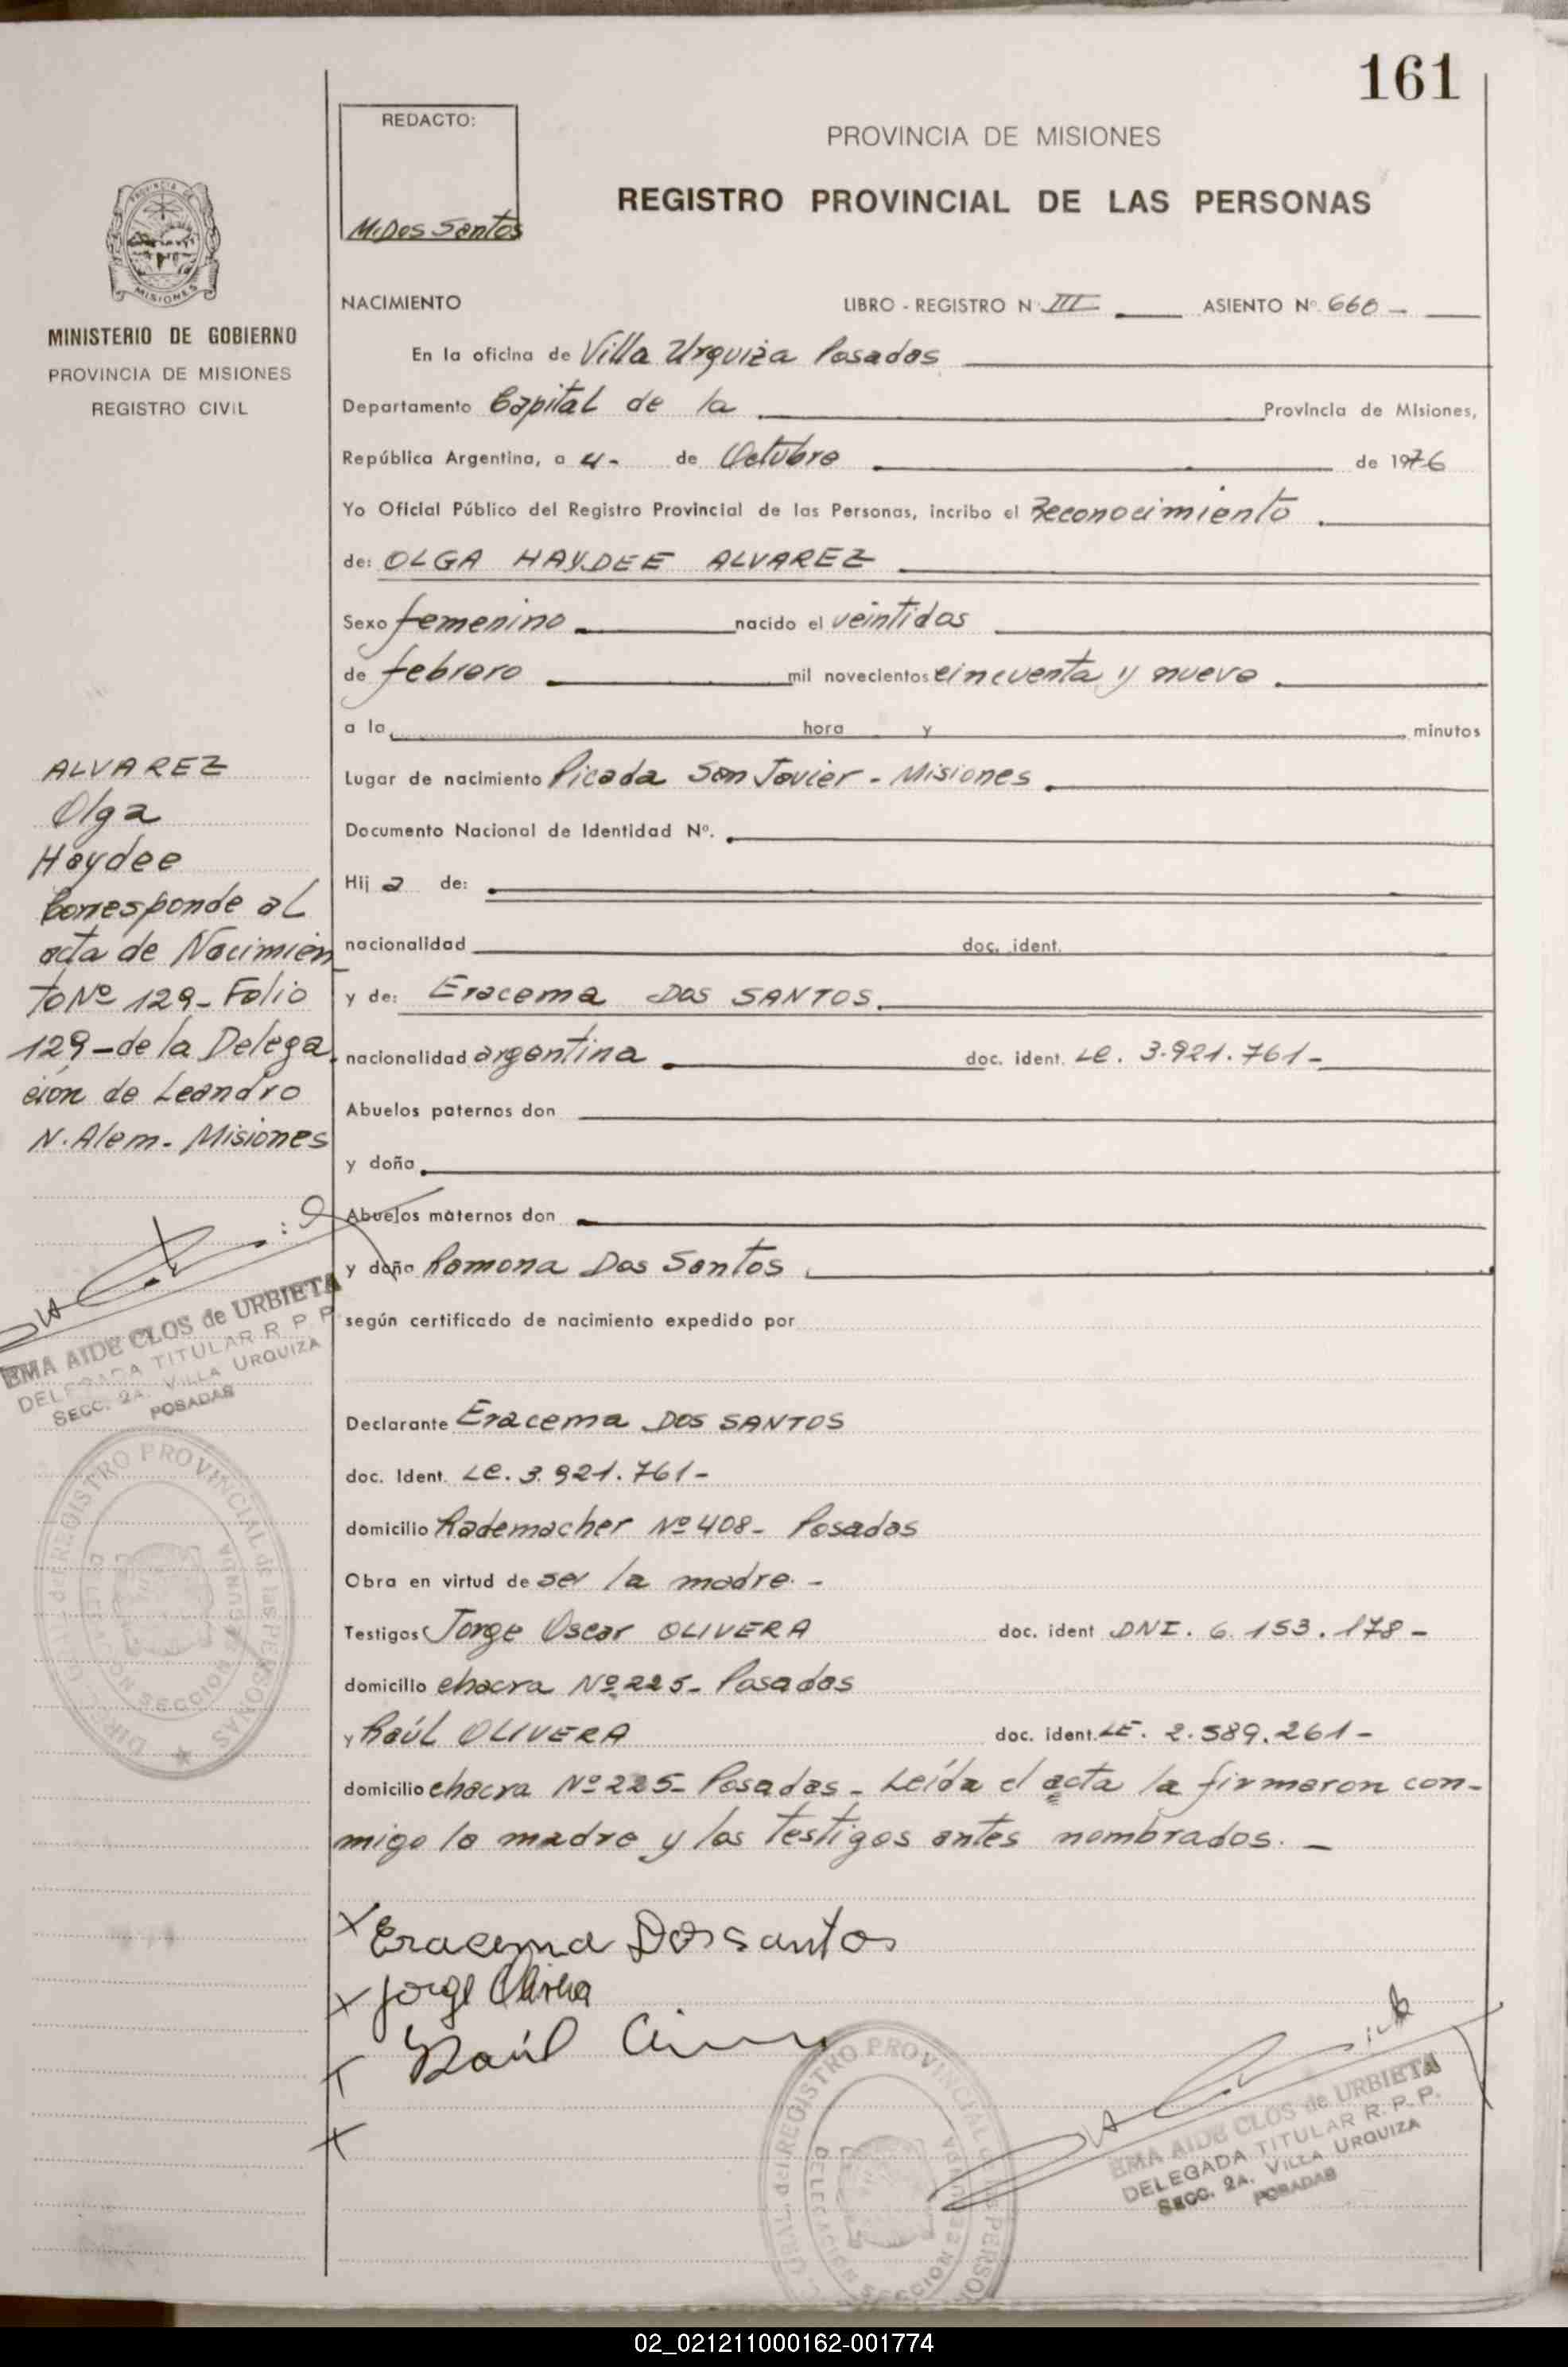 161
REDACTO:
M. Dos Santos
PROVINCIA DE MISIONES
REGISTRO PROVINCIAL DE LAS PERSONAS
PROVINCIA DE
MISIONES
MINISTERIO DE GOBIERNO
PROVINCIA DE MISIONES
REGISTRO CIVIL
NACIMIENTO LIBRO - REGISTRO Nº III ASIENTO Nº 660 -
En la oficina de Villa Urquiza Posadas
Departamento Capital de la Provincia de Misiones,
República Argentina, a 4- de Octubre de 1976
Yo Oficial Público del Registro Provincial de las Personas, incribo el Reconocimiento
de: OLGA HAYDEE ALVAREZ
Sexo femenino nacido el veintidos
de febrero mil novecientos cincuenta y nueve
a la hora y minutos
Lugar de nacimiento Picada San Javier - Misiones
Documento Nacional de Identidad Nº.
Hij a de:
nacionalidad doc. ident.
y de: Eracema DOS SANTOS
nacionalidad argentina doc. ident. LC. 3.921.761-
Abuelos paternos don
y doña
Abuelos maternos don
y doña Ramona Dos Santos
según certificado de nacimiento expedido por
Declarante Eracema DOS SANTOS
doc. Ident. LC. 3.921.761-
domicilio Rademacher Nº 408- Posadas
Obra en virtud de ser la madre. -
Testigos Jorge Oscar OLIVERA doc. ident DNI. 6.153.178-
domicilio chacra Nº 225- Posadas
y Raúl OLIVERA doc. ident. LE. 2.589.261-
domicilio chacra Nº 225- Posadas - Leída el acta la firmaron con-
migo la madre y los testigos antes nombrados. -
Eracema Dos santos
Jorge Olivera
Raúl
ALVAREZ
Olga
Haydee
Corresponde al
acta de Nacimien
to Nº 129- Folio
129- de la Delega
ción de Leandro
N. Alem- Misiones
EMA AIDE CLOS de URBIETA
DELEGADA TITULAR R P P
SECC. 2A. VILLA URQUIZA
POSADAS
DIR. GRAL. del REGISTRO PROVINCIAL de las PERSONAS
DELEGACION SECCION SEGUNDA
GRAL. del REGISTRO PROVINCIAL de las PERSON
DELEGACION SECCION SEGUNDA
EMA AIDE CLOS de URBIETA
DELEGADA TITULAR R. P. P.
SECC. 2A. VILLA URQUIZA
POSADAS
02_021211000162-001774